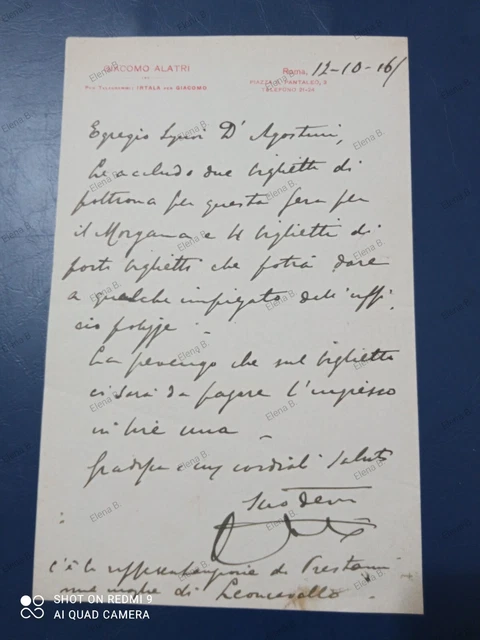 GIACOMO ALATRI
PER TELEGRAMMI: IRTALA PER GIACOMO
Roma, 12-10-16
PIAZZA S. PANTALEO, 3
TELEFONO 31-04
Egregio Signor D'Agostini,
Le accludo due biglietti di
poltrona per questa sera per
il Morgana e 4 biglietti di
posti biglietto che potrà dare
a qualche impiegato dell'uffi
cio
La prevengo che sul biglietto
ci sarà da pagare l'ingresso
in lire una
Gradisca i miei cordiali saluti
Suo
c'è la rappresentazione di
moglie di Leoncavallo
Elena B.
SHOT ON REDMI 9
AI QUAD CAMERA